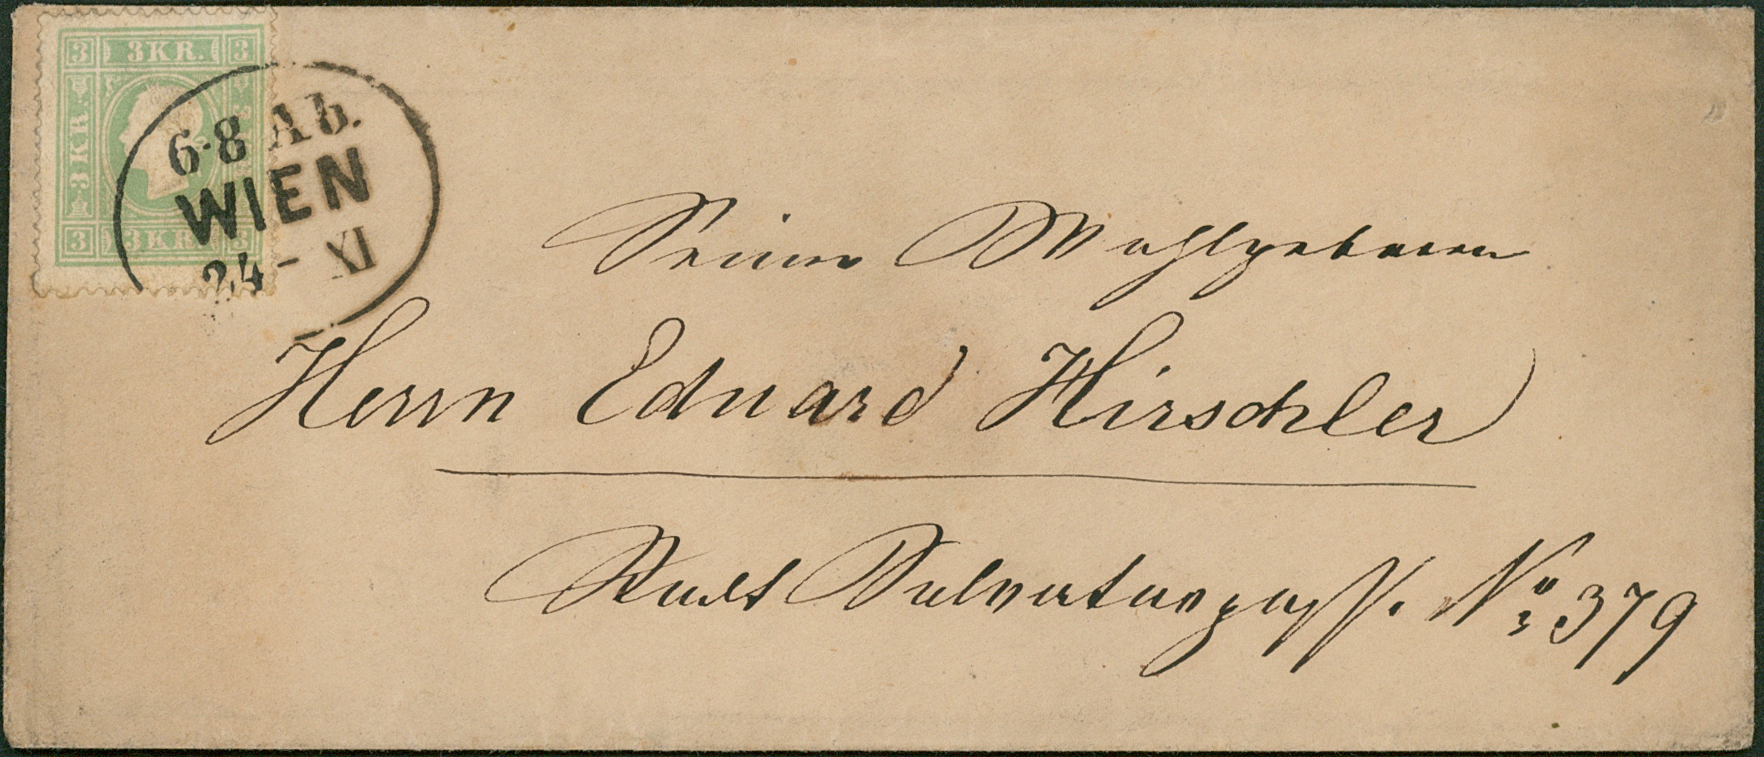 3 3 KR. 3
3 KR.
3 3 KR. 3
6-8 Ab.
WIEN
24 - XI
Seiner Wohlgeboren
Herrn Eduard Hirschler
Stadt Salvatorgasse No 379